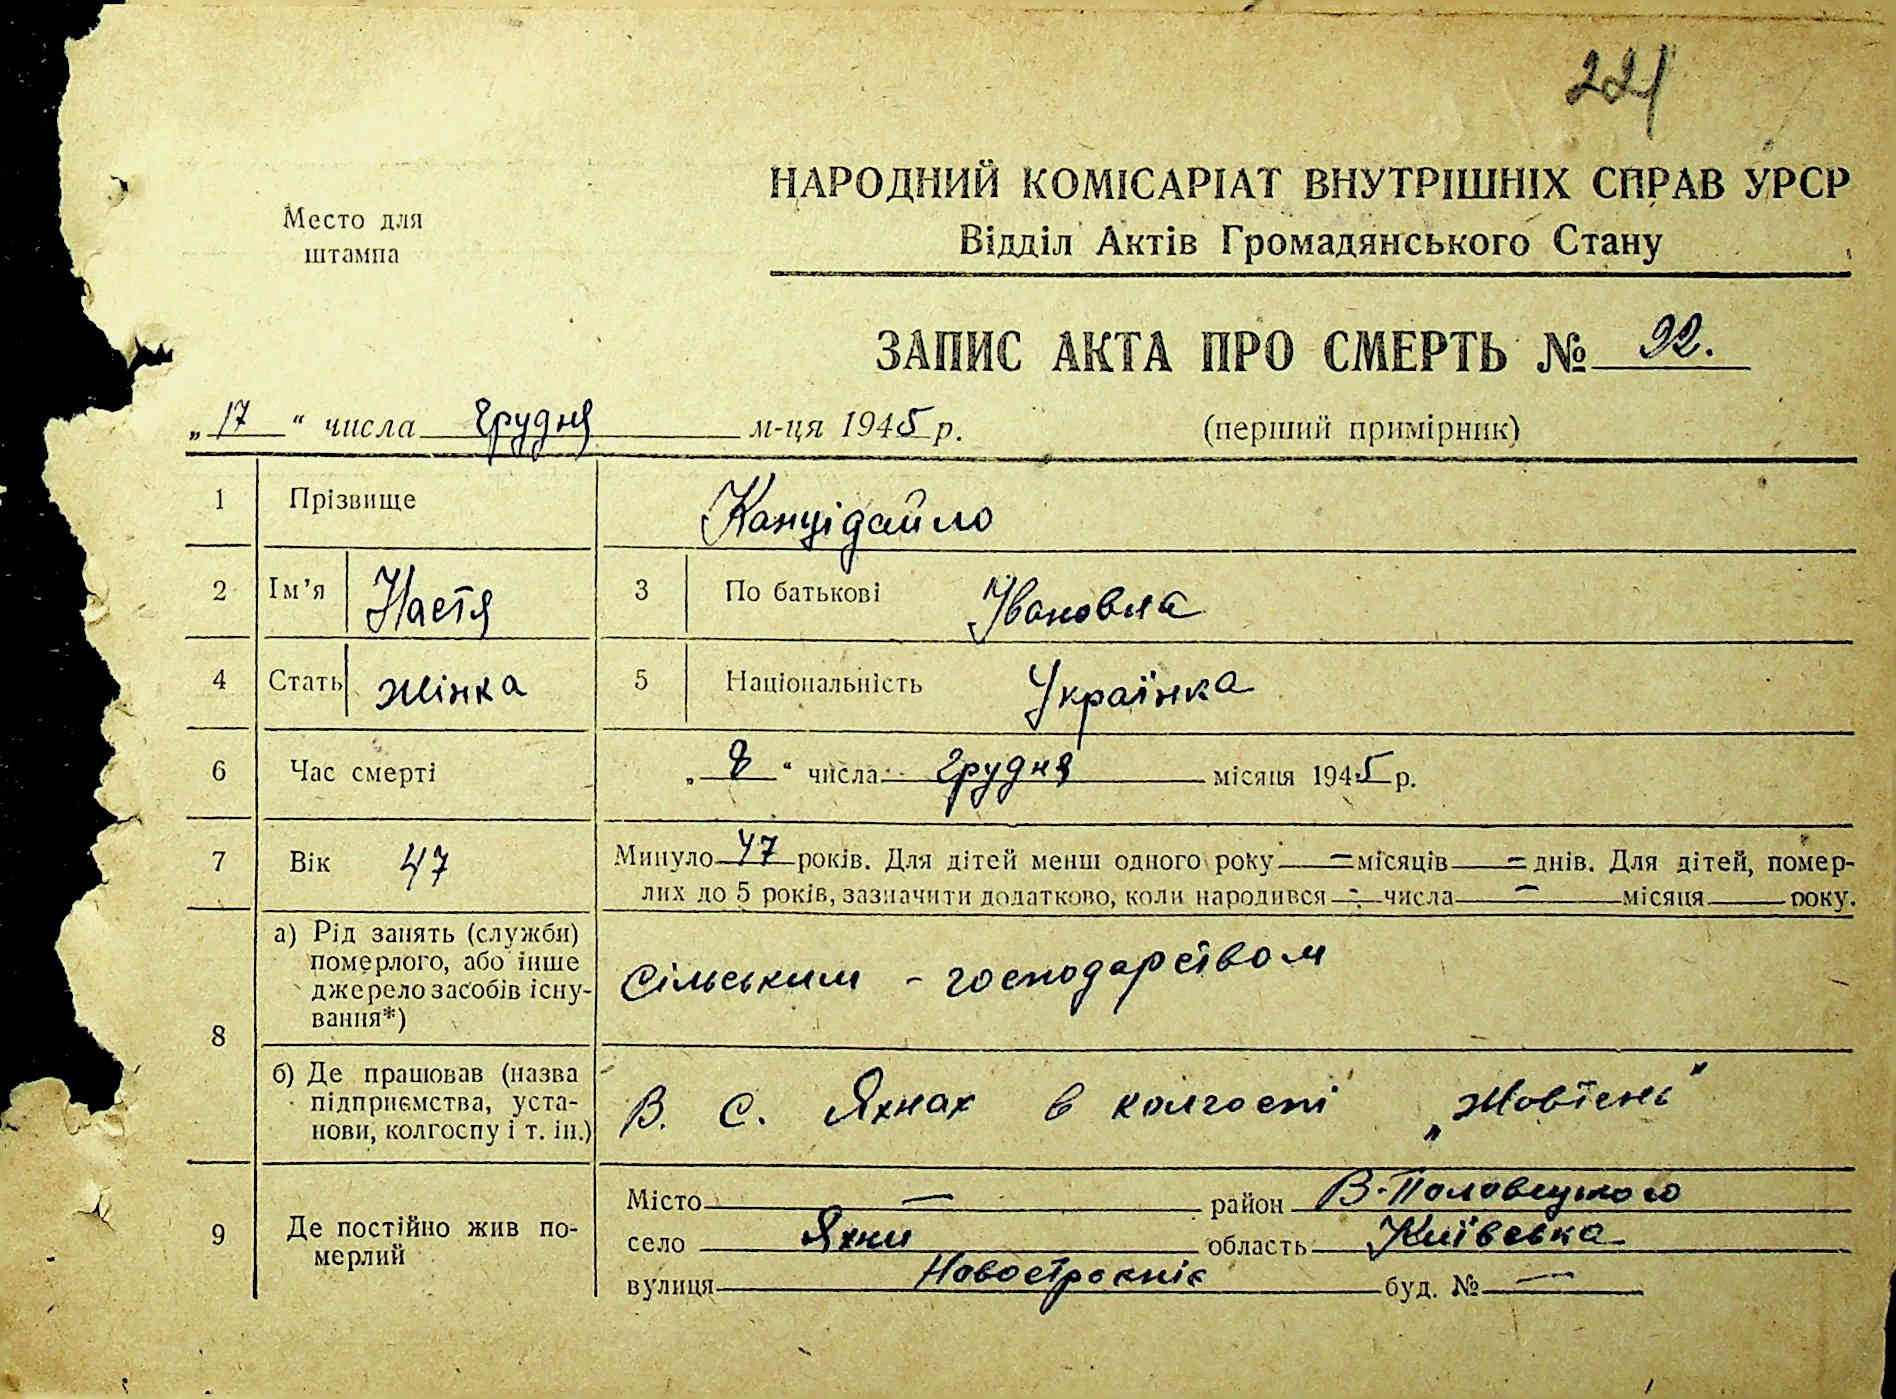 221
НАРОДНИЙ КОМІСАРІАТ ВНУТРІШНІХ СПРАВ УРСР
Место для
штампа
Відділ Актів Громадянського Стану
ЗАПИС АКТА ПРО СМЕРТЬ № 92.
„17“ числа грудня м-ця 1945 р. (перший примірник)
1 Прізвище Канцідайло
2 Ім'я Настя 3 По батькові Івановна
4 Стать жінка 5 Національність Українка
6 Час смерті „8“ числа грудня місяця 1945 р.
7 Вік 47 Минуло 47 років. Для дітей менш одного року = місяців = днів. Для дітей, помер-
лих до 5 років, зазначити додатково, коли народився - числа - місяця року.
8 а) Рід занять (служби)
померлого, або інше
джерело засобів існу-
вання*)
Сільським - господарством
б) Де працював (назва
підприємства, уста-
нови, колгоспу і т. ін.)
В. С. Яхнах в колгоспі „Жовтень"
9 Де постійно жив по-
мерлий
Місто — район В-Половецького
село Яхни область Київська
вулиця буд. № —